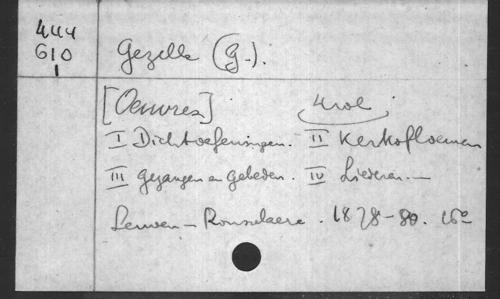 444
610
1
Gezelle (G.).
[Oeuvres] 4 vol
I Dichtoefeningen. II Kerkofbloemen
III Gezangen en Gebeden. IV Liederen.—
Leuven – Rousselaere. 1878–80. 16º